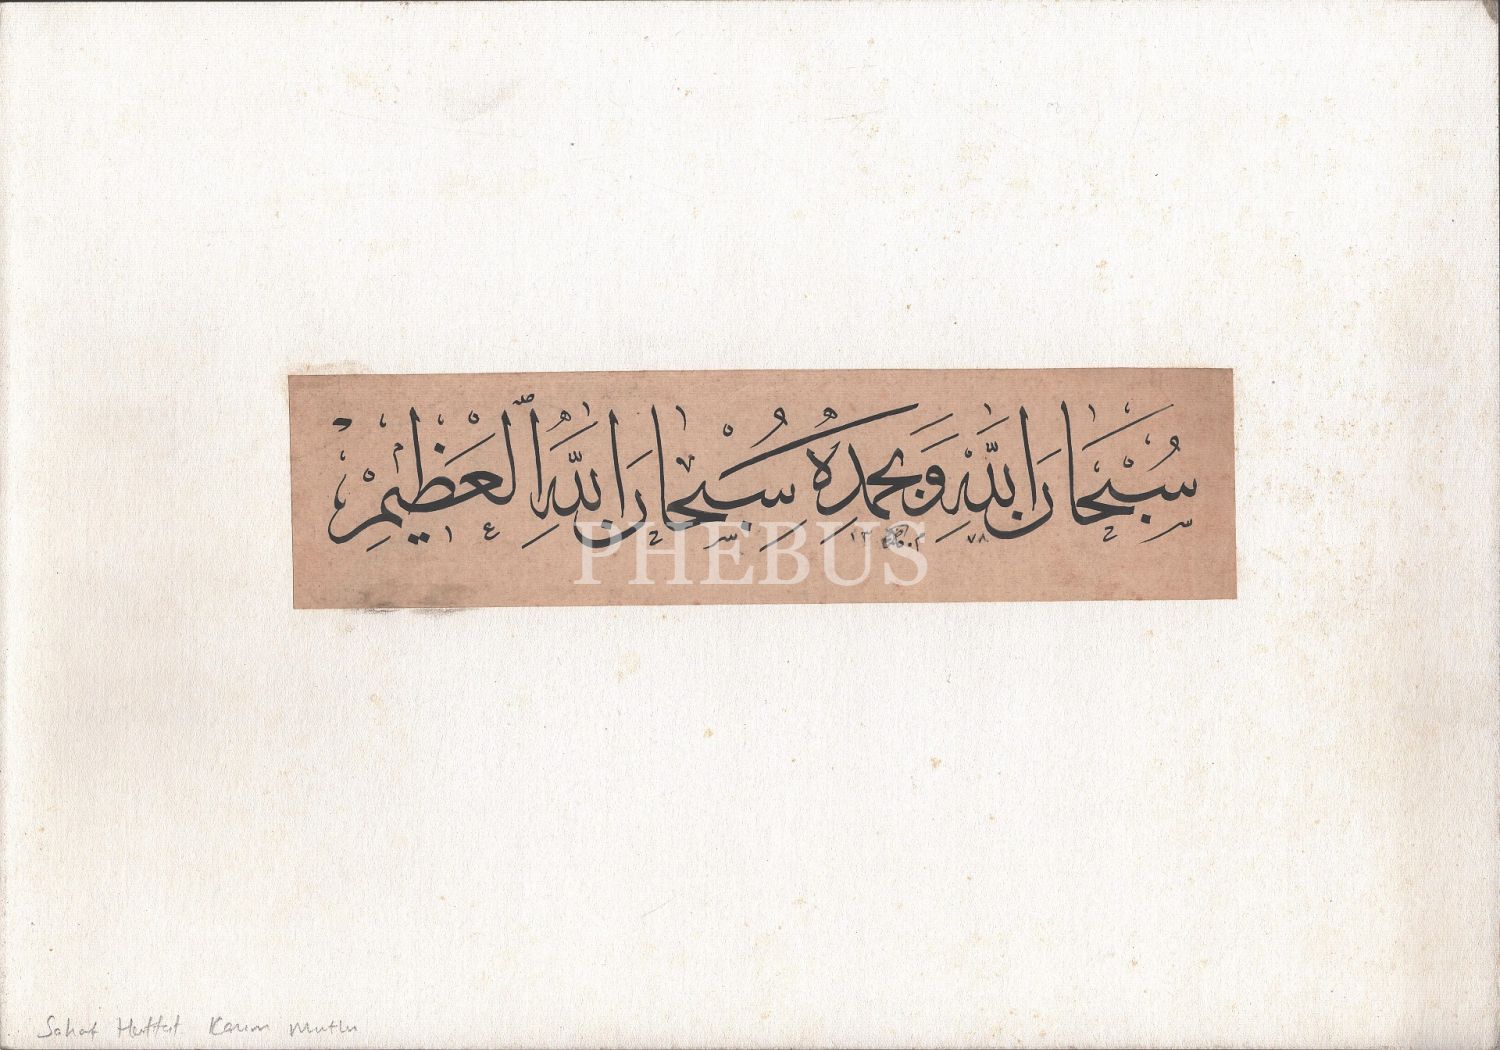 سُبْحَانَ اللَّهِ وَبِحَمْدِهِ سُبْحَانَ اللَّهِ الْعَظِيمِ
١٣ ٧٨
PHEBUS
Sahaf Hattat Kerim Mutlu